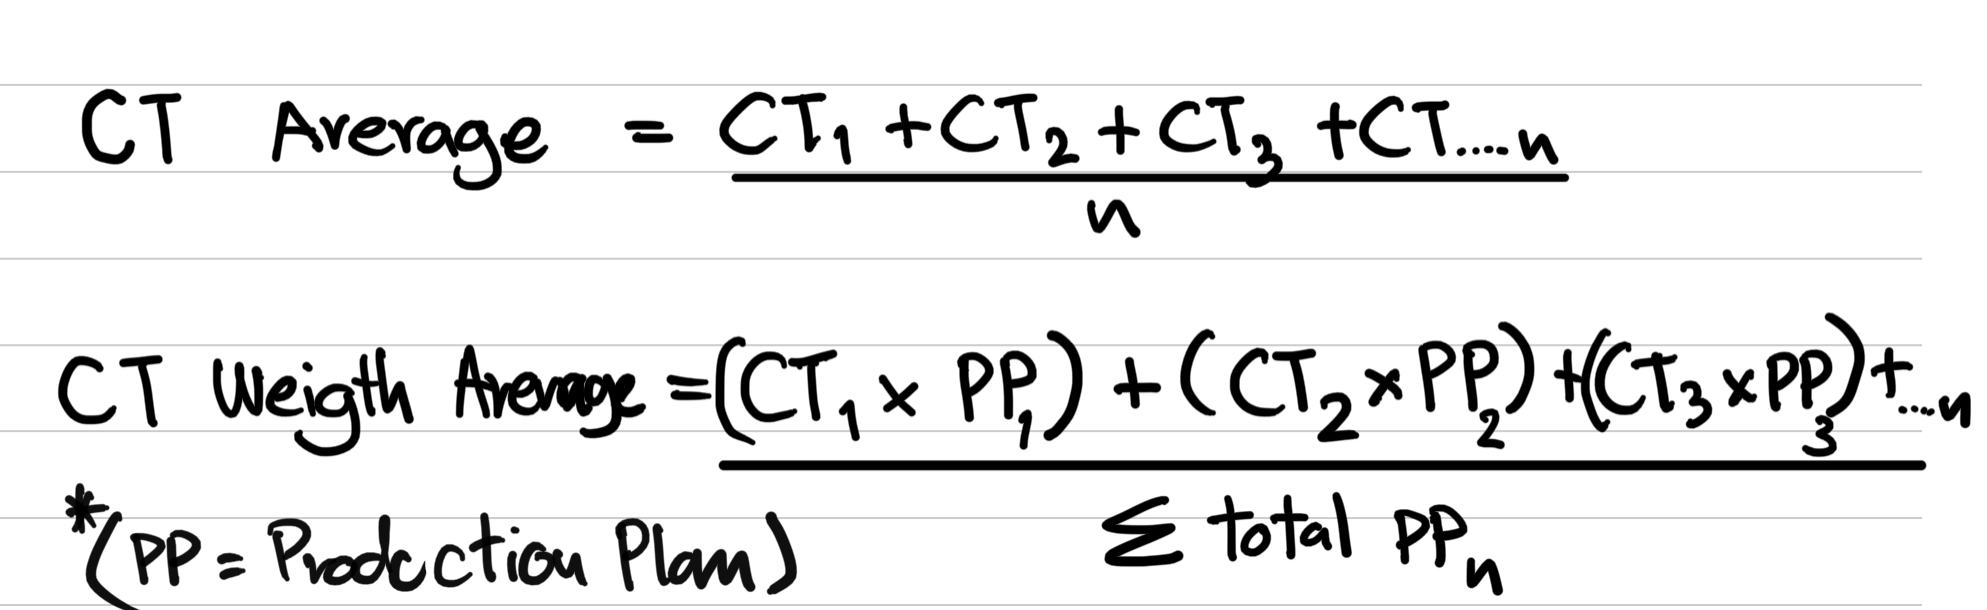 CT Average = CT₁ + CT₂ + CT₃ + CT....n
n
CT Weigth Average = (CT₁ x PP₁) + (CT₂ x PP₂) + (CT₃ x PP₃) + ....n
Σ total PPₙ
*(PP = Prodcction Plan)